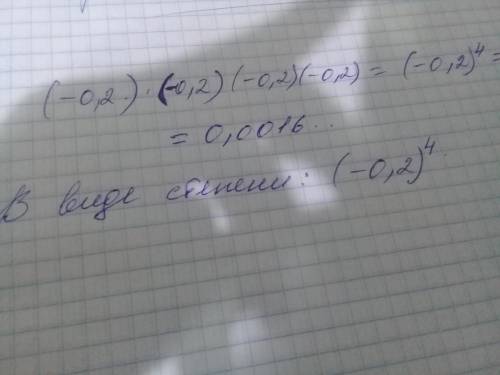 (-0,2)·(-0,2)(-0,2)(-0,2) = (-0,2)⁴ =
= 0,0016..
В виде степени: (-0,2)⁴